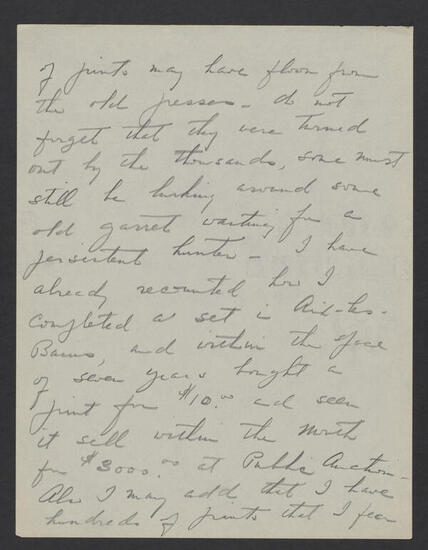 of prints may have flown from
the old presses - do not
forget that they were turned
out by the thousands, some must
still be lurking around some
old garret waiting for a
persistent hunter - I have
already recounted how I
completed a set in Aix-les-
Bains, and within the space
of seven years bought a
print for $10.00 and seen
it sell within the month
for $3000.00 at Public Auction -
Also I may add that I have
hundreds of prints that I fear